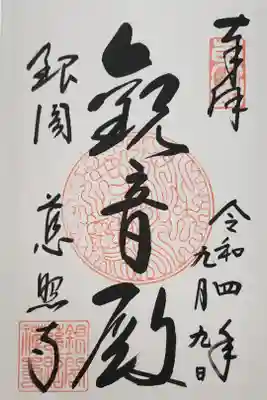 奉拝
令和四年
九月九日
觀音殿
銀閣
慈照寺